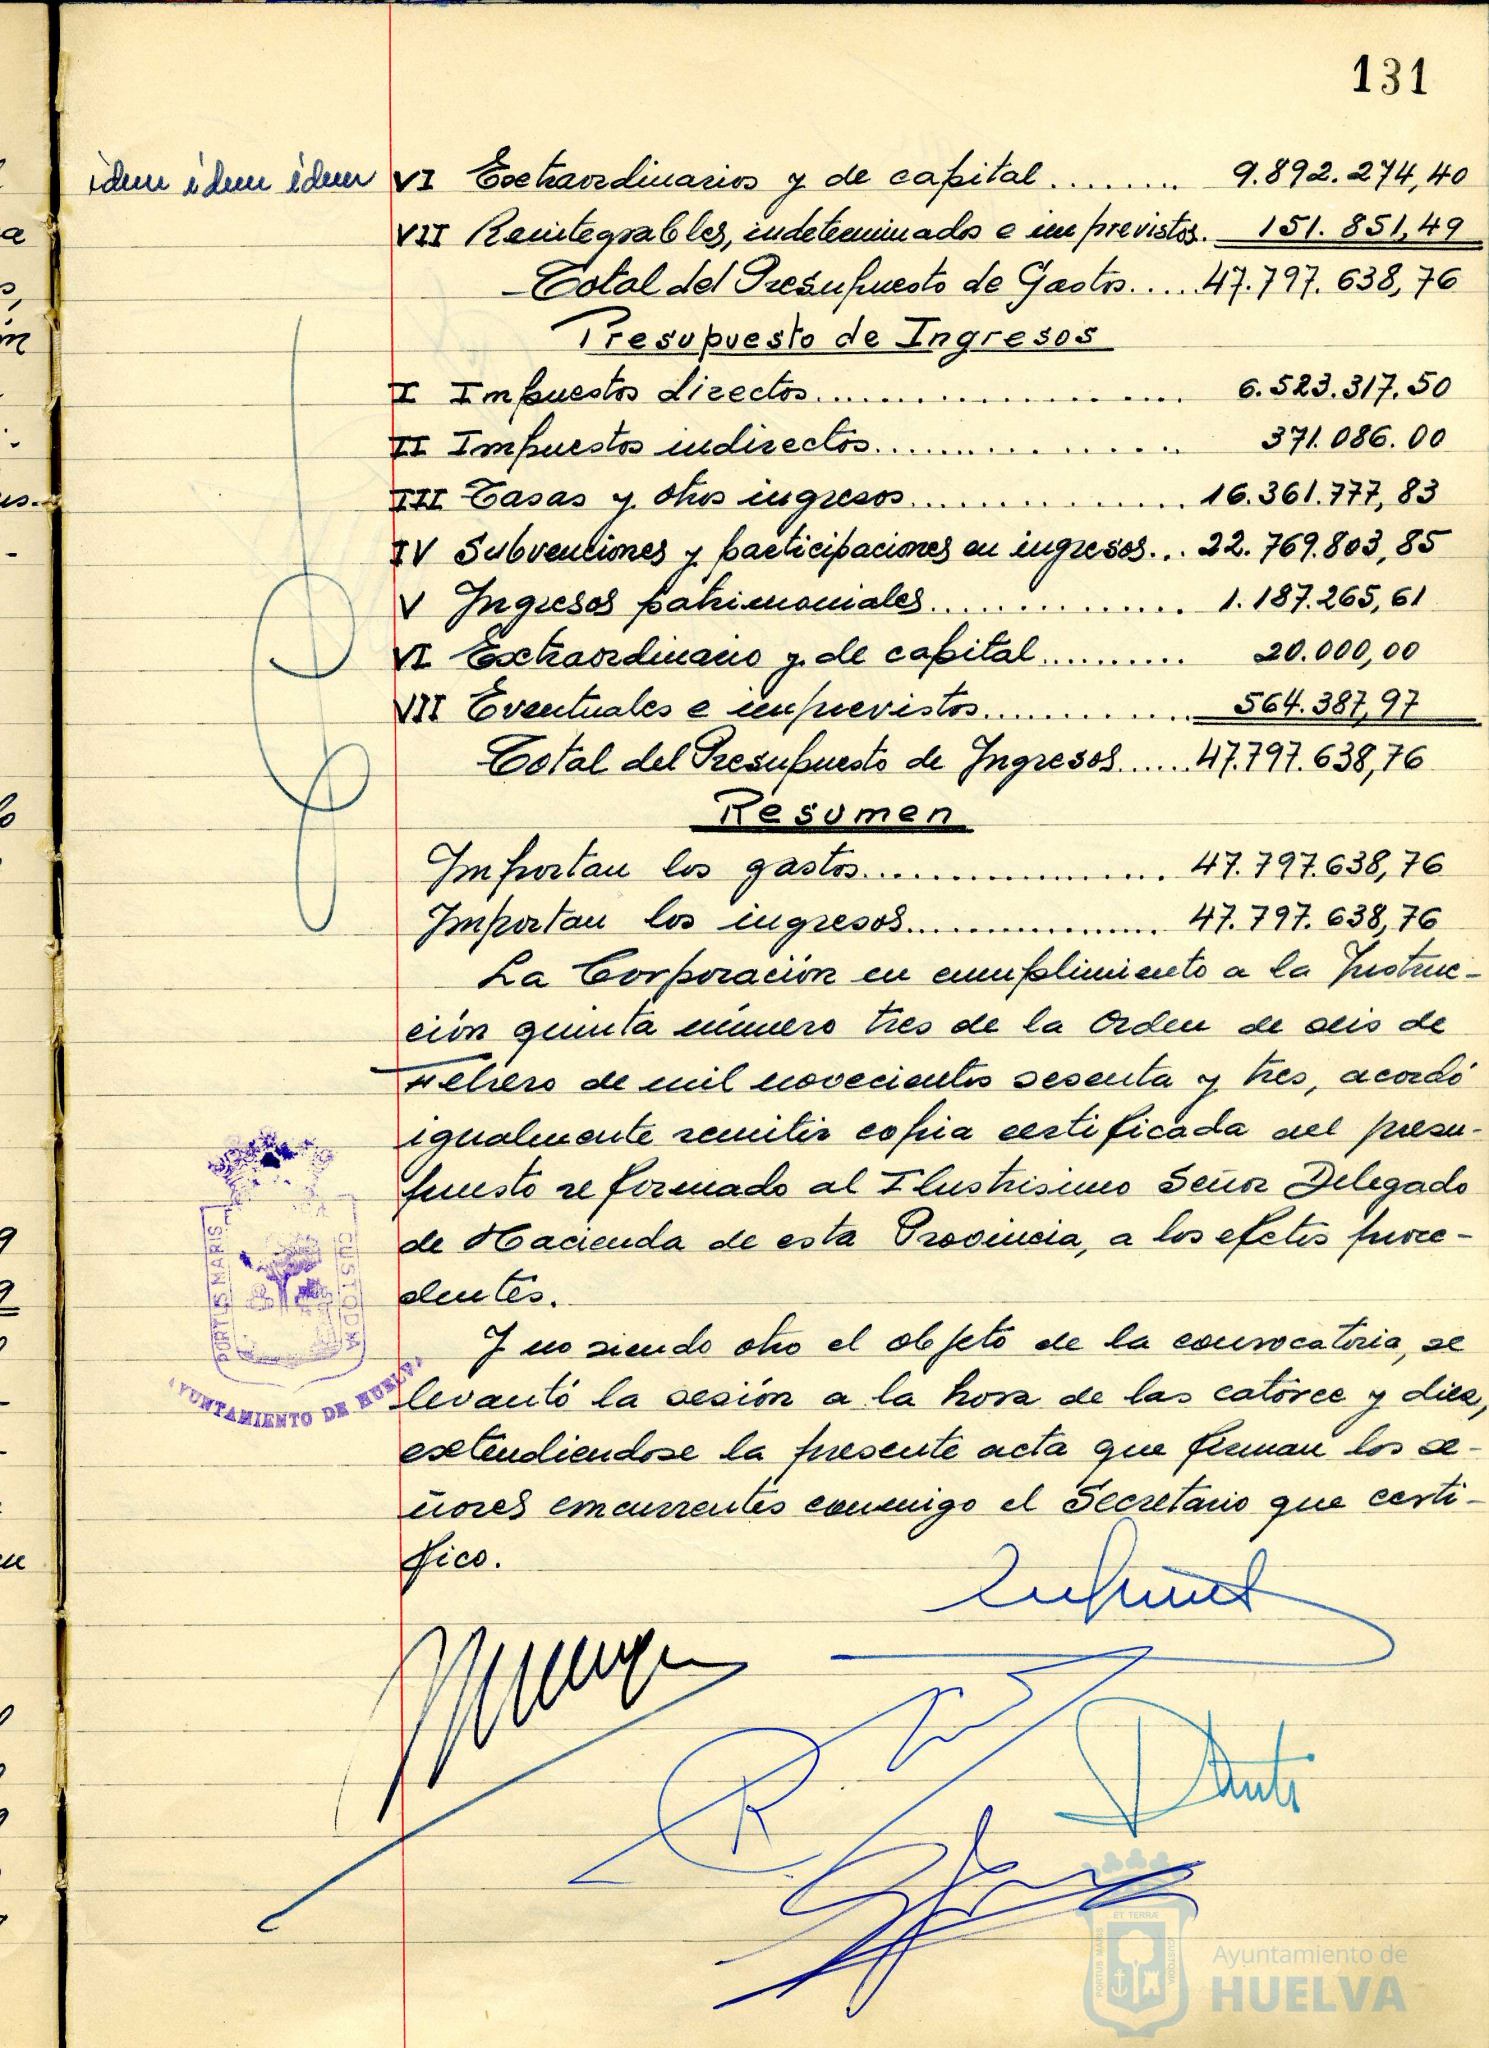 131
idem idem idem VI Extraordinarios y de capital ........ 9.892.274,40
VII Reintegrables, indeterminados e imprevistos. 151.851,49
Total del Presupuesto de Gastos ..... 47.797.638,76
Presupuesto de Ingresos
I Impuestos directos .................... 6.523.317.50
II Impuestos indirectos ................. 371.086.00
III Tasas y otros ingresos ............... 16.361.777,83
IV Subvenciones y participaciones en ingresos... 22.769.803,85
V Ingresos patrimoniales ............... 1.187.265,61
VI Extraordinario y de capital .......... 20.000,00
VII Eventuales e imprevistos ............. 564.387,97
Total del Presupuesto de Ingresos ...... 47.797.638,76
Resumen
Importan los gastos .................. 47.797.638,76
Importan los ingresos ................. 47.797.638,76
La Corporación en cumplimiento a la Instruc-
ción quinta número tres de la Orden de seis de
Febrero de mil novecientos sesenta y tres, acordó
igualmente remitir copia certificada del presu-
puesto reformado al Ilustrisimo Señor Delegado
de Hacienda de esta Provincia, a los efectos proce-
dentes.
Y no siendo otro el objeto de la convocatoria, se
levantó la sesión a la hora de las catorce y diez,
extendiendose la presente acta que firman los se-
ñores concurrentes conmigo el Secretario que certi-
fico.
PORTUS MARIS
CUSTODIA
AYUNTAMIENTO DE HUELVA
R
ET TERRÆ
PORTUS MARIS
CUSTODIA
Ayuntamiento de
HUELVA